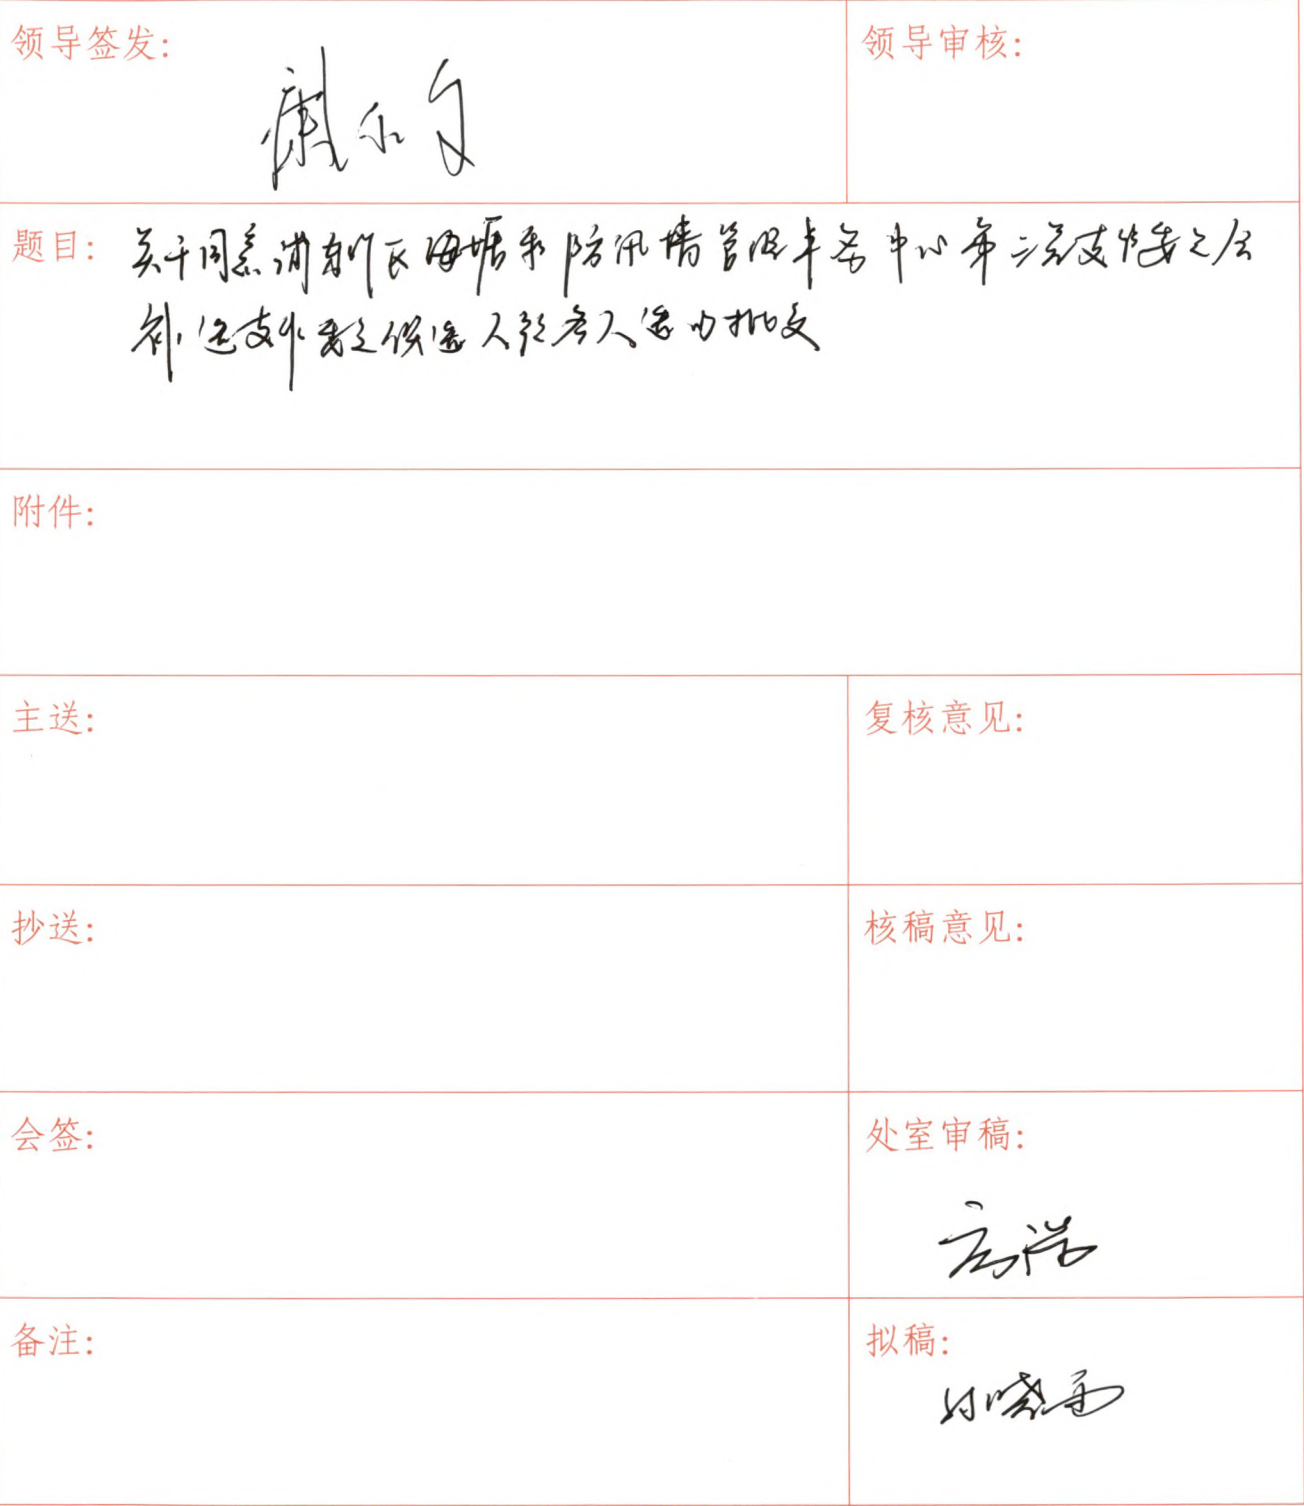 领导签发:
领导审核:
题目: 关于同意浦东新区海塘和防汛墙管理事务中心第二党支部委员会
补选支部委员候选人预备人选的批文
附件:
主送:
复核意见:
抄送:
核稿意见:
会签:
处室审稿:
备注:
拟稿: